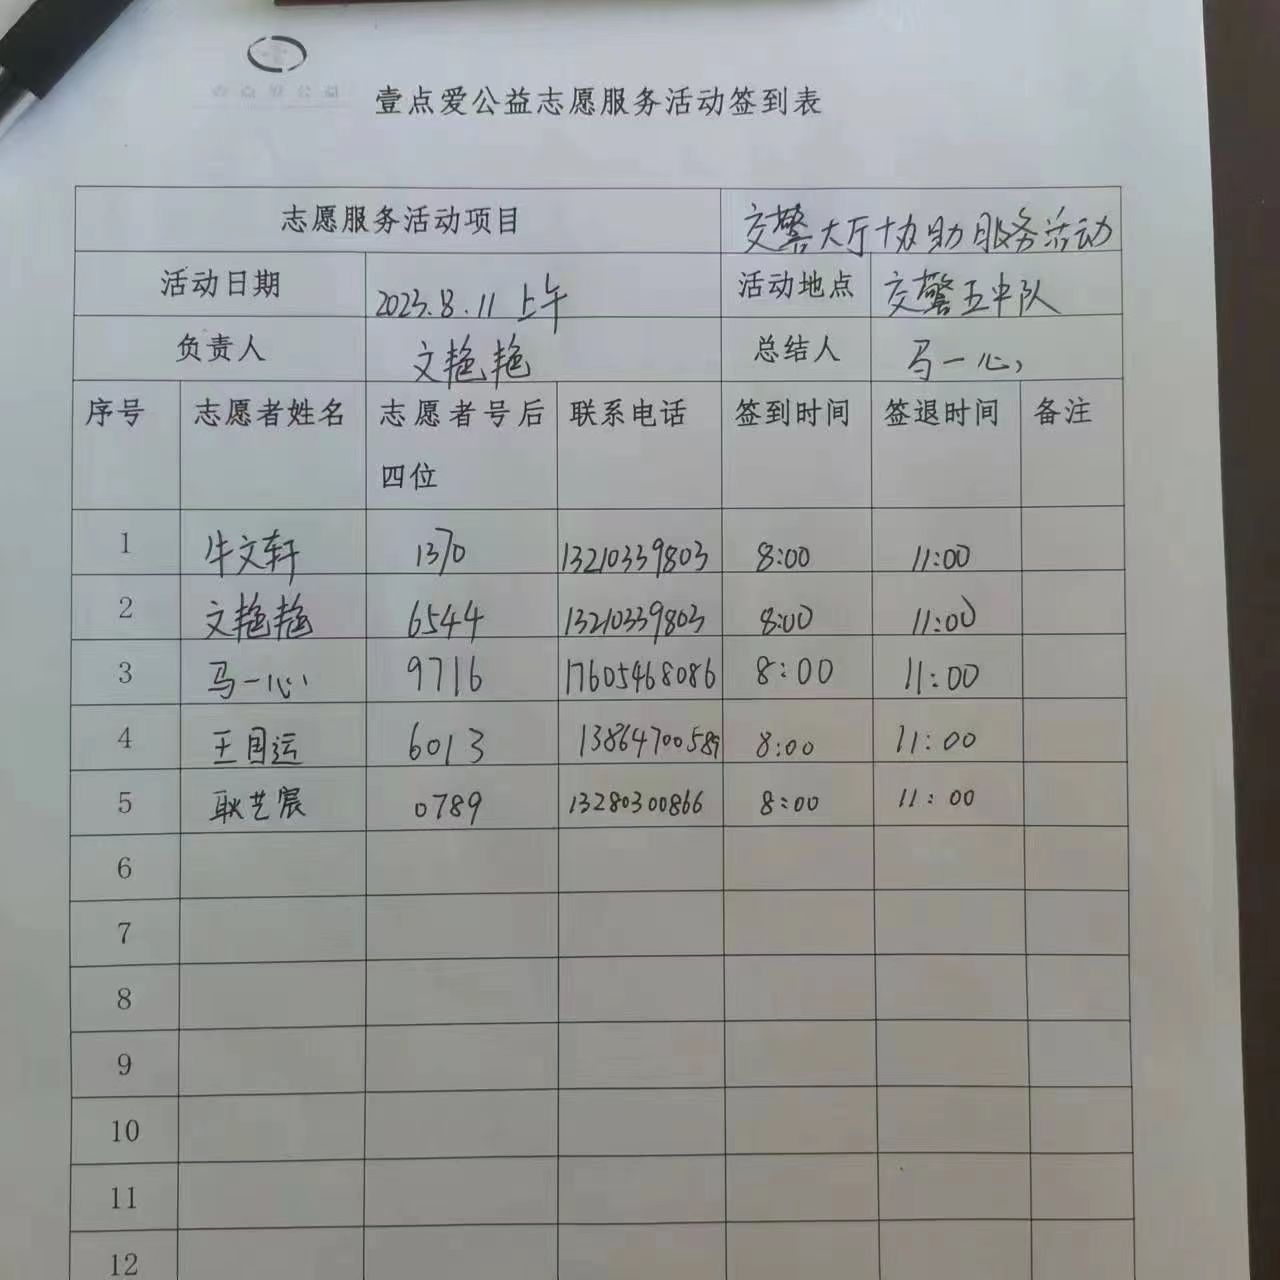 壹点爱公益
壹点爱公益志愿服务活动签到表
志愿服务活动项目 交警大厅协助服务活动
活动日期 2023.8.11 上午 活动地点 交警五中队
负责人 文艳艳 总结人 马一心
序号 志愿者姓名 志愿者号后 联系电话 签到时间 签退时间 备注
四位
1 牛文轩 1370 13210339803 8:00 11:00
2 文艳艳 6544 13210339803 8:00 11:00
3 马一心 9716 17605468086 8:00 11:00
4 王国运 6013 13864700589 8:00 11:00
5 耿艺宸 0789 13280300866 8:00 11:00
6
7
8
9
10
11
12